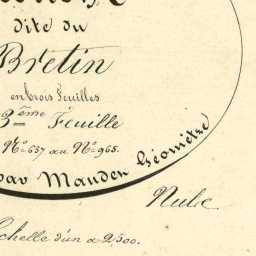 dite du
Bretin
en trois feuilles
3ème Feuille
Nos 637 au No 965.
par Mauden Géomètre
Echelle d'un a 2500.